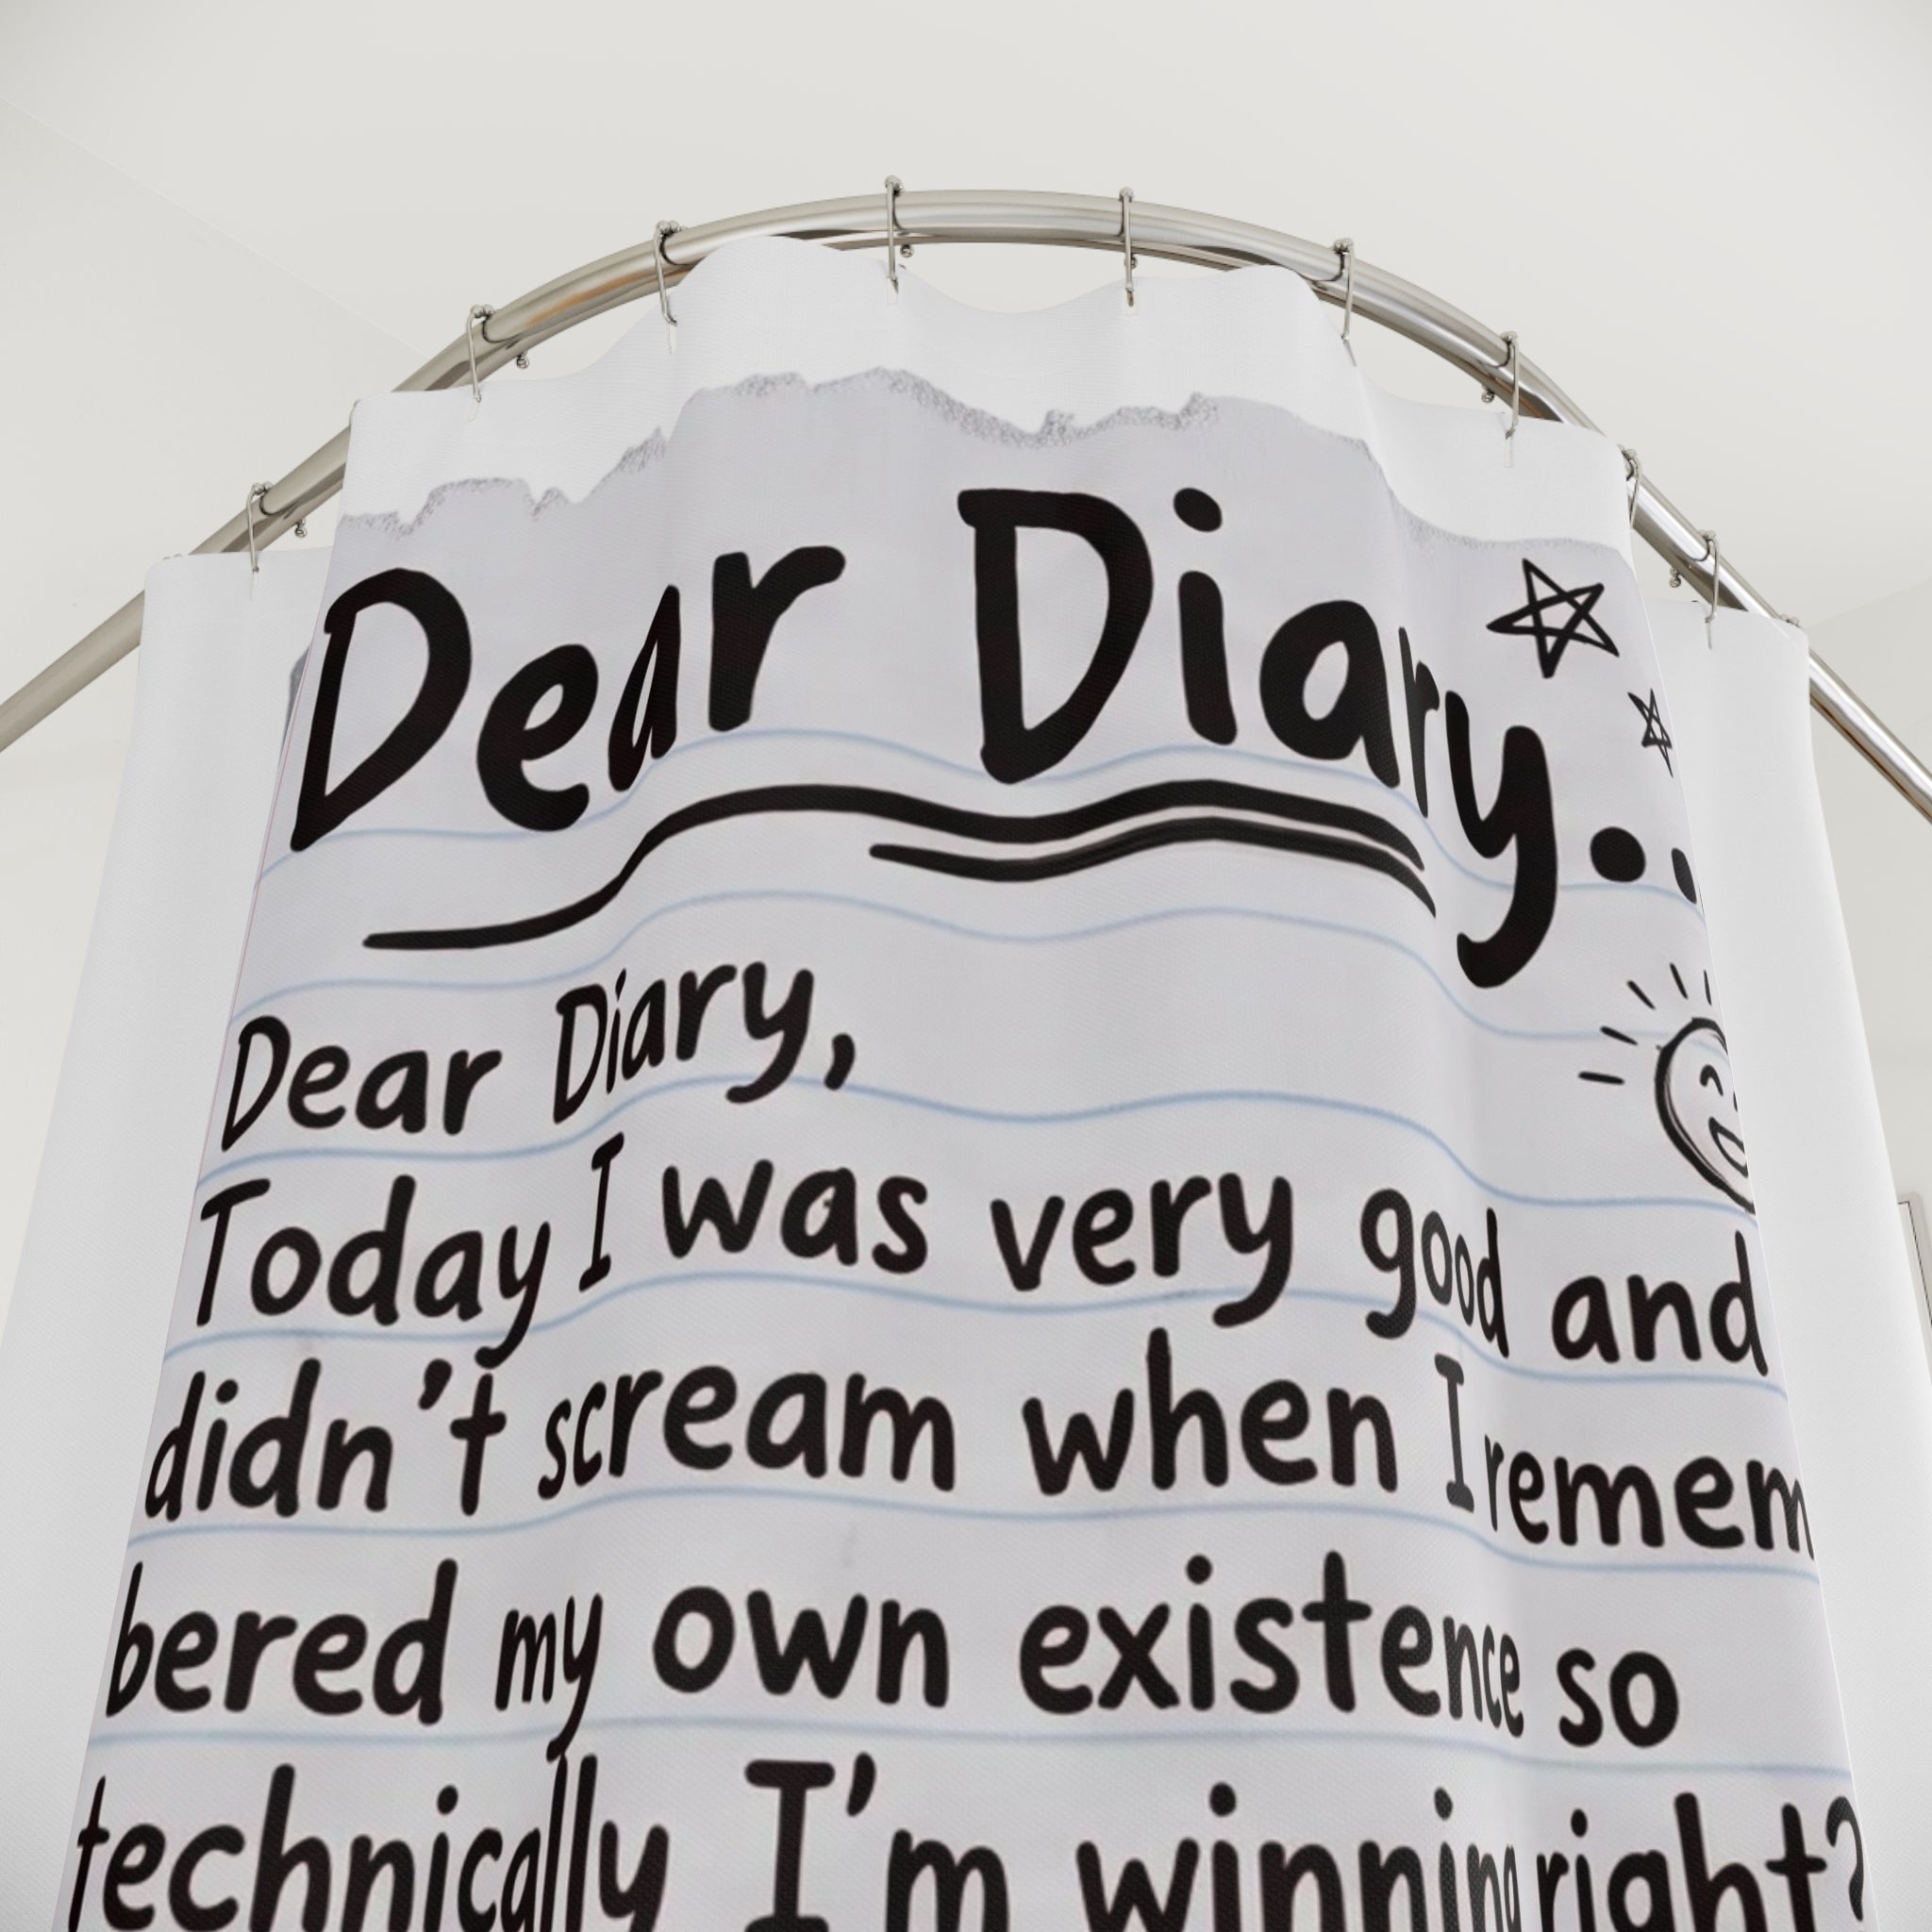 Dear Diary..
Dear Diary,
Today I was very good and
didn't scream when I remem
bered my own existence so
technically I'm winning right?